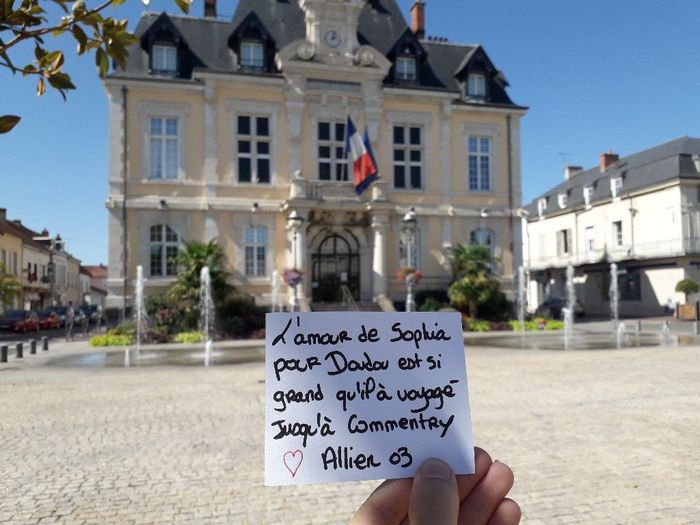 L'amour de Sophia
pour Doudou est si
grand qu'il à voyagé
Jusqu'à Commentry
Allier 03